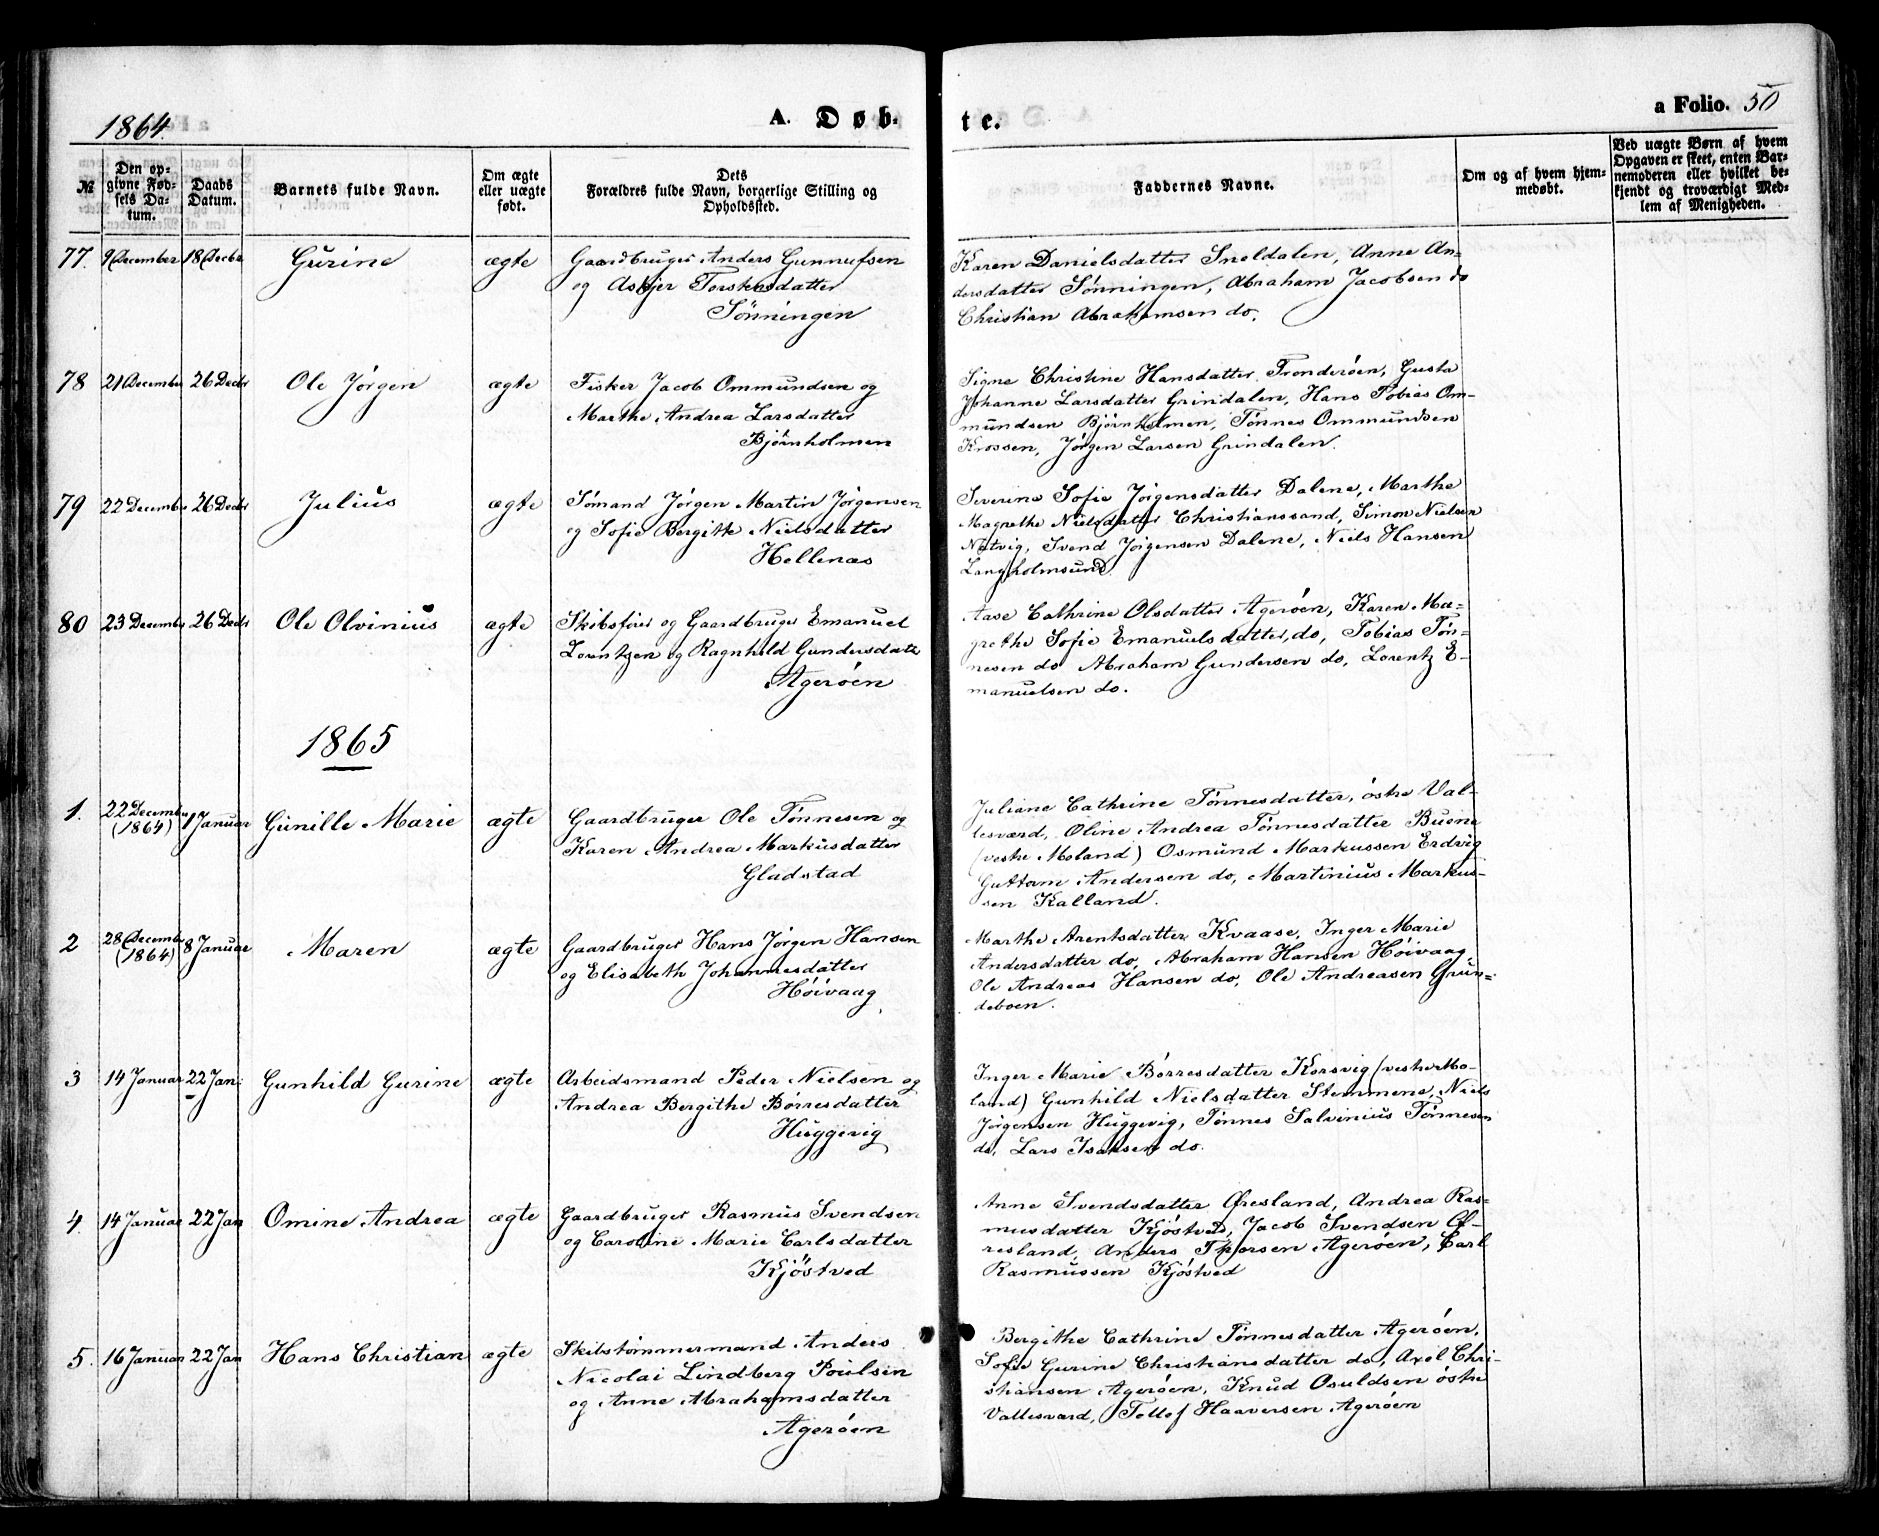 1864.
A. Døb-
te.
a Folio. 50
№
Den op-
givne Fød-
sels Da-
tum.
Daabs
Datum.
Barnets fulde Navn.
Om ægte
eller uægte
født.
Dets
Forældres fulde Navn, borgerlige Stilling og
Opholdssted.
Faddernes Navne.
Om og af hvem hjem-
medøbt.
Ved uægte Børn af hvem
Opgaven er skeet, enten Bar-
nemoderen eller hvilket be-
kjendt og troværdigt Med-
lem af Menigheden.
77. 9 December 18 Decbr Gurine ægte
Gaardbruger Anders Gunnufsen
og Asbjer Torkelsdatter
Sønningen
Karen Danielsdatter Sneldalen, Anne An-
dersdatter Sønningen, Abraham Jacobsen do
Christian Abrahamsen do.
78 21 December 26 Decbr Ole Jørgen ægte
Fisker Jacob Ommundsen og
Marthe Andrea Larsdatter
Bjørnholmen
Signe Christine Hansdatter Tronderøen, Gusta
Johanne Larsdatter Grindalen, Hans Tobias Om-
mundsen Bjørnholmen, Tønnes Ommundsen
Krossen, Jørgen Larsen Grindalen.
79 22 December 26 Decbr Julius ægte
Sømand Jørgen Martin Jørgensen
og Sofie Bergithe Nielsdatter
Hellenæs
Severine Sofie Jørgensdatter Dalene, Marthe
Magrethe Nielsdatter Christianssand, Simon Nielsen
Nøtvig, Svend Jørgensen Dalene, Niels Hansen
Langholmsund
80 23 December 26 Decbr Ole Olvinius ægte
Skibsfører og Gaardbruger Emanuel
Lorentzen og Ragnhild Gundersdattr
Agerøen
Aase Cathrine Olsdatter Agerøen, Karen Ma-
grethe Sofie Emanuelsdatter do, Tobias Tøn-
nesen do Abraham Gundersen do, Lorentz E-
manuelsen do.
1865
1. 22 December (1864) 1 Januar Gunille Marie ægte
Gaardbruger Ole Tønnesen og
Karen Andrea Markusdatter
Gladstad
Juliane Cathrine Tønnesdatter, østre Val-
lesværd, Oline Andrea Tønnesdatter Buene
(vestre Moland) Osmund Markussen Erdvig
Guttorm Andersen do, Martinius Markus-
sen Kalland.
2 28 December (1864) 8 Januar Maren ægte
Gaardbruger Hans Jørgen Hansen
og Elisabeth Johannesdatter
Høivaag
Marthe Arentsdatter Kvaase, Inger Marie
Andersdatter do, Abraham Hansen Høivaag
Ole Andreas Hansen do, Ole Andreasen Grün-
deboen.
3 14 Januar 22 Jan: Gunhild Gurine ægte
Arbeidsmand Peder Nielsen og
Andrea Bergithe Børresdatter
Huggevig
Inger Marie Børresdatter Korsvig (vestre Mo-
land) Gunhild Nielsdatter Stemmene, Niels
Jørgensen Huggevig, Tønnes Salvinius Tønnesen
do, Lars Isaksen do.
4. 14 Januar 22 Jan Omine Andrea ægte
Gaardbruger Rasmus Svendsen
og Caroline Marie Carlsdatter
Kjøstved
Anne Svendsdatter Øresland, Andrea Ras-
musdatter Kjøstved, Jacob Svendsen Ø-
resland, Anders Thorsen Agerøen, Carl
Rasmussen Kjøstved
5. 16 Januar 22 Jan Hans Christian ægte
Skibstømmermand Anders
Nicolai Lindberg Poulsen
og Anne Abrahamsdatter
Agerøen
Bergithe Cathrine Tønnesdatter Agerøen,
Sofie Gurine Christiansdatter do, Axel Chri-
stiansen Agerøen, Knud Osuldsen østre
Vallesværd, Tellef Haaversen Agerøen